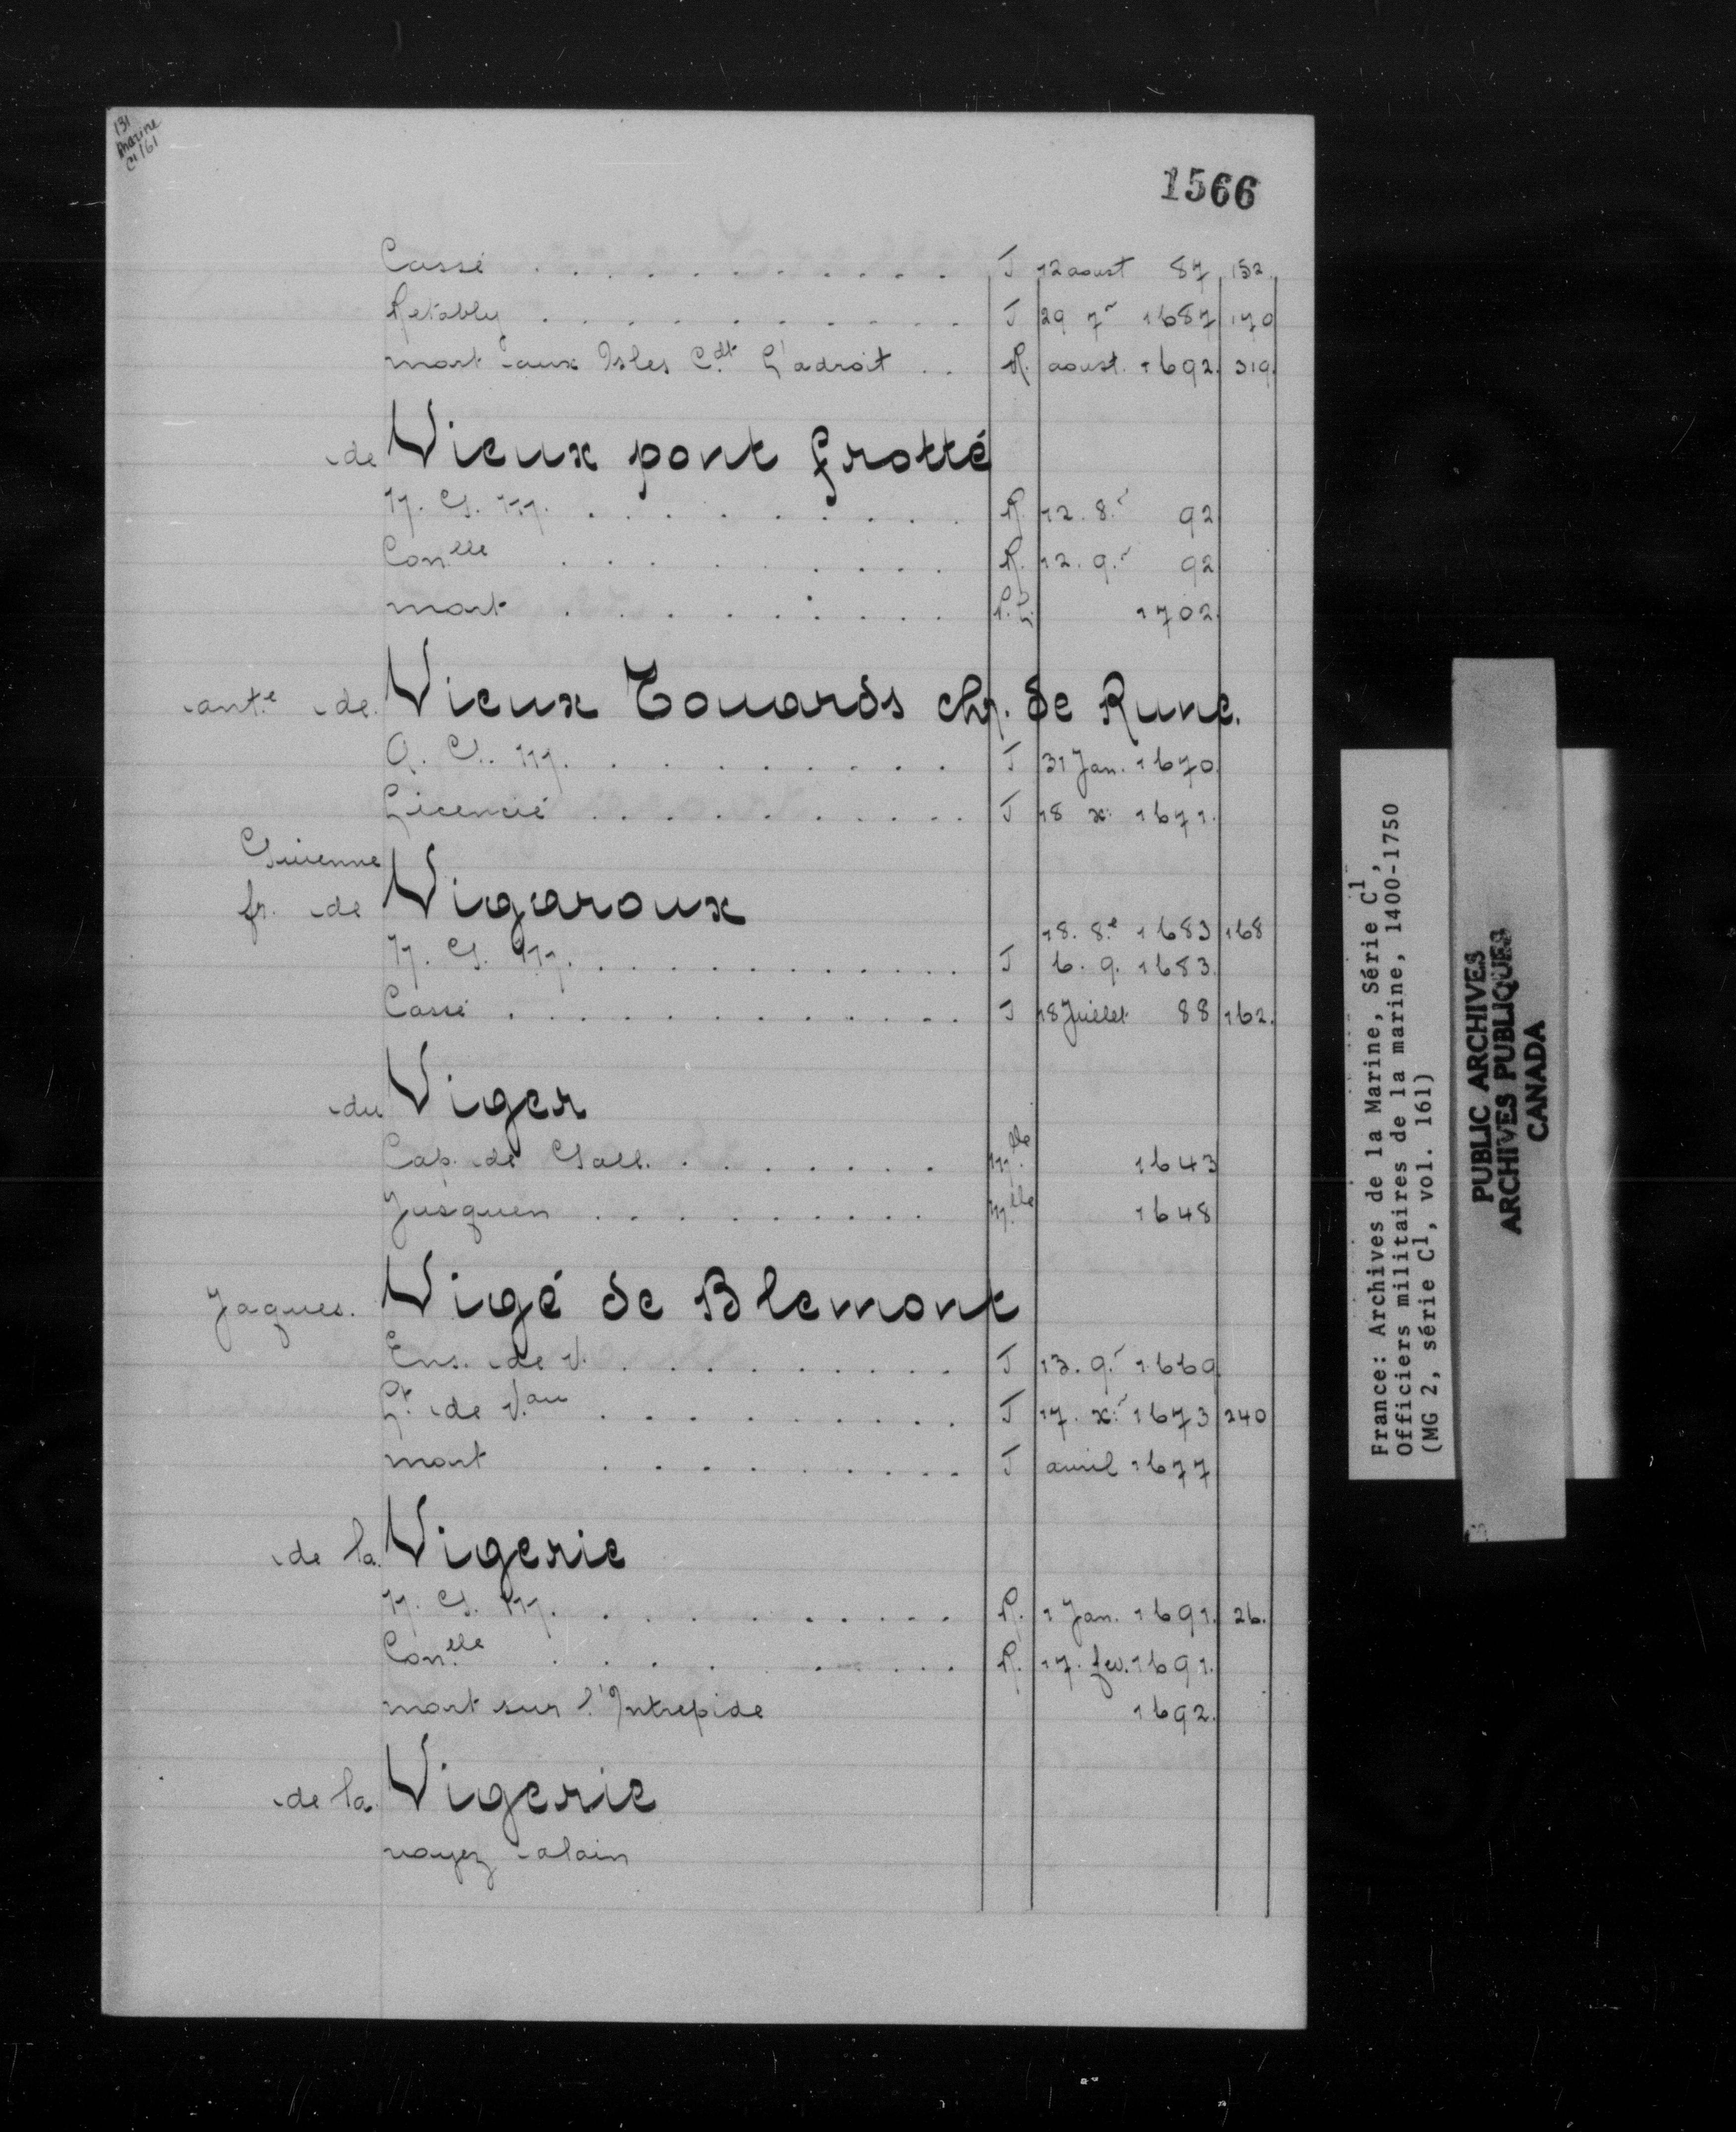 131
Marine
C1 161
1566
Cassé . . . . . . . . . . J 12 aoust 87 152.
Retably . . . . . . . . . . J 29 7r 1687 170
mort aux Isles C.dt L'adroit . . R. aoust. 1692. 319.
de Vieux pont frotté
N. G. M. . . . . . . . . R. 12. 8.r 92
Con.lle . . . . . . . . R. 12. 9.r 92
mort . . . . . . . . 1702.
ant.e de Vieux Touards chr. de Rune.
G. M. . . . . . . . . J 31 Jan. 1670.
Licencié . . . . . . . . J 18 x. 1671.
Guienne
fr. de Vigaroux
18. 8.e 1683 168
N. G. M. . . . . . . . . . J 6. 9. 1683.
Cassé . . . . . . . . . J 18 Juillet 88 162.
du Viger
Cap. de Gall. . . . . . . M.lle 1643
Jusquen . . . . . . . M.lle 1648
Jaques. Vigé de Blemont
Ens. de V. . . . . . . . J 13. 9.r 1669
Lt. de V.au . . . . . . . . J 17. x.r 1673 240
mort . . . . . . . . J avril 1677
de la Vigerie
N. G. M. . . . . . . . . R. 1 Jan. 1691. 26.
Con.lle . . . . . . . . R. 17. fev. 1691.
mort sur l'Intrepide 1692.
de la Vigerie
voyez alain
France: Archives de la Marine, Série C1,
Officiers militaires de la marine, 1400-1750
(MG 2, série C1, vol. 161)
PUBLIC ARCHIVES
ARCHIVES PUBLIQUES
CANADA